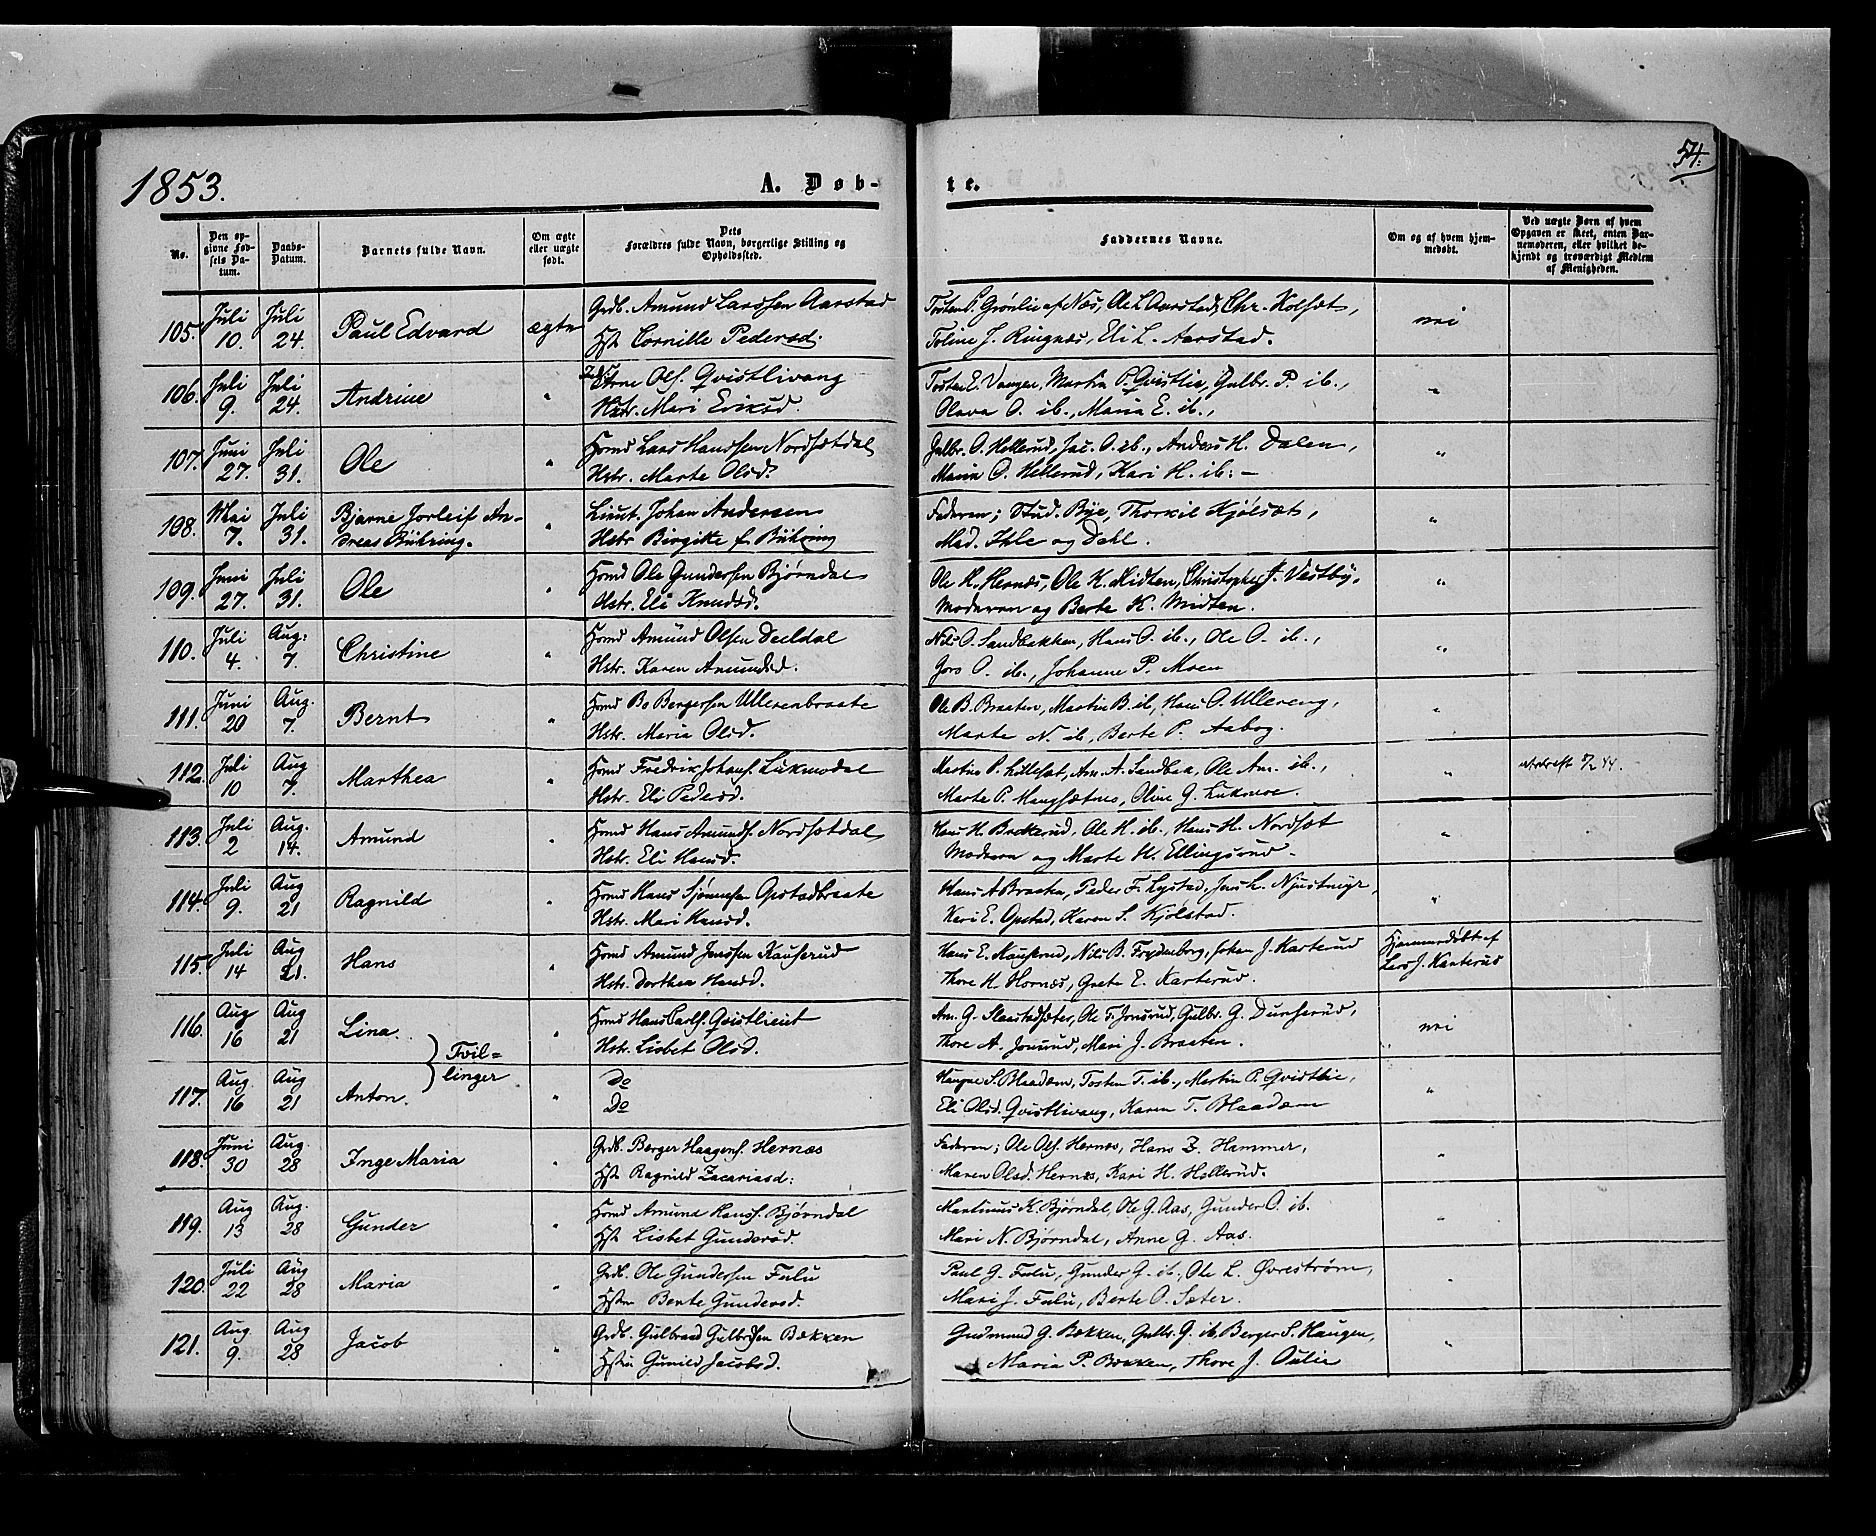 1853.
A. Døb-
te.
54.
No.
Den op-
givne Fød-
sels Da-
tum.
Daabs-
Datum.
Barnets fulde Navn.
Om ægte
eller uægte
født.
Dets
Forældres fulde Navn, borgerlige Stilling og
Opholdssted.
Faddernes Navne.
Om og af hvem hjem-
medøbt.
Ved uægte Børn af hvem
Opgaven er skeet, enten Bar-
nemoderen, eller hvilket be-
kjendt og troværdigt Medlem
af Menigheden.
105. Juli 10. Juli 24. Paul Edvard ægte Grdb. Amund Larssen Aarstad
Hst. Cornille Pedersd.
Tosten P. Grønlie af Næs, Ole L. Aarstad, Chr. Kolsæt,
Toline J. Ringnæs, Eli L. Aarstad.
nei
106. Juli 9. Juli 24. Andrine " Arne Ols. Qvistlivang
Hstr. Mari Eriksd.
Tosten E. Vangen, Martin P. Qvistlie, Gulbr. P. ib.,
Olava O. ib., Maria E. ib.,
"
107. Juni 27. Juli 31. Ole " Hsmd Lars Hanssen Nordsætdal
Hstr. Marte Olsd.
Gulbr. O. Hellerud, Jac. O. ib., Anders H. Dalen,
Marin O. Hellerud, Kari H. ib. –
"
108. Mai 7. Juli 31. Bjarne Jorleif An-
dreas Bühring. " Lieut. Johan Andersen
Hstr Birgitte f. Bühring
Faderen; Stud. Bye, Thorkil Kjølsæt,
Mad. Ihle og Dahl.
"
109. Juni 27. Juli 31. Ole " Hsmd Ole Gundersen Bjørndal
Hstr. Eli Knudsd.
Ole H. Hernæs, Ole K. Midten, Christopher J. Vestby,
Moderen og Berte K. Midten.
"
110. Juli 4. Aug. 7. Christine " Hsmd Amund Olsen Dældal
Hstr. Karen Amundsd.
Nils O. Sandbakken, Hans O. ib., Ole O. ib.,
Goro O. ib., Johanne P. Moen
"
111. Juni 20 Aug. 7. Bernt " Hsmd Bo Bergersen Ullerenbraate
Hstr. Maria Olsd.
Ole B. Braaten, Martin B. ib, Hans O. Ullereng,
Marte N. ib, Berte P. Aabog.
"
112. Juli 10 Aug 7. Marthea " Hsmd Fredrik Johans. Lukmodal
Hstr. Eli Pedersd.
Martin P. Lillesæt, Am. A. Sandbæk, Ole Am. ib.,
Marte P. Mangsætnes, Oline G. Lukmoe.
" 7/2 44.
113. Juli 2 Aug. 14. Amund " Hsmd Hans Amunds. Nordsætdal
Hstr. Eli Hansd.
Hans H. Bækkerud, Ole H. ib., Hans H. Nordsæt
Moderen og Marte H. Ellingsrud.
"
114. Juli 9. Aug 21 Ragnild " Hsmd Hans Simensen Opstadbraate
Hstr. Mari Hansd.
Hans A Braaten, Peder F. Lystad, Jens L. Njustmyr,
Kari E. Opstad, Karen S. Kjølstad.
"
115. Juli 14 Aug 21. Hans " Hsmd Amund Jenssen Kauserud
Hstr. Dorthea Hansd.
Hans E. Kauserud, Nils B. Frydenberg, Johan J. Karterud
Thore H. Hornæs, Grete E. Karterud.
Hjemmedøbt af
Lars J. Karterud
116. Aug 16 Aug 21 Lina. " Hsmd Hans Carls. Qvistlieiet
Hstr. Lisbet Olsd.
Am. G. Slaastadsæter, Ole F. Jonsrud, Gulbr. G. Dunserud,
Thore A. Jonsrud, Mari J. Braaten.
nei
Tvil-
linger
117. Aug. 16 Aug 21 Anton. " Do
Do
Haagne S. Blaadæm, Tosten T. ib., Martin P. Qvistlie,
Eli Olsd. Qvistlivang, Karen T. Blaadæm
"
118. Juni 30 Aug. 28 Inge Maria " Grdb. Berger Haagens. Hernæs
Hst. Ragnild Zacariasd.
Faderen; Ole Ols. Hernæs, Hans Z. Hammer,
Maren Olsd. Hernæs, Kari H. Hellerud.
"
119. Aug 13 Aug. 28 Gunder " Hsmd Amund Hanss. Bjørndal
Hst. Lisbet Gundersd.
Martinus K. Bjørndal, Ole G. Aas, Gunder O. ib.
Mari N. Bjørndal, Anne G. Aas.
"
120. Juli 22 Aug 28 Maria " Grdb. Ole Gundersen Fulu
Hstr. Berte Gundersd.
Paul G. Fulu, Gunder G. ib., Ole L. Øvrestrøm,
Mari J. Fulu, Berte O. Sæter.
"
121. Aug. 9. Aug 28 Jacob " Grdb. Gulbrand Gulbrdsen Bækken
Hstr. Gunild Jacobsd.
Gudmund G. Bækken, Gulbr. G. ib, Berger S. Haugen,
Maria P. Bækken, Thore J. Oulie
"